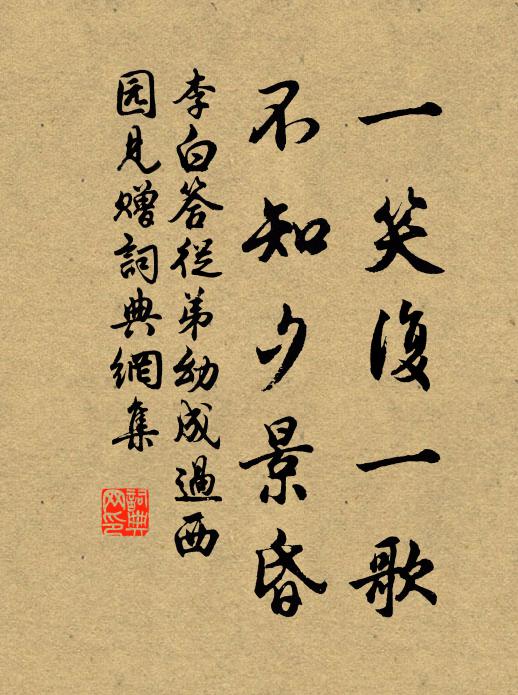 一笑復一歌
不知夕景昏
李白答從弟幼成過西
园見贈詞典網集
詞典
网印